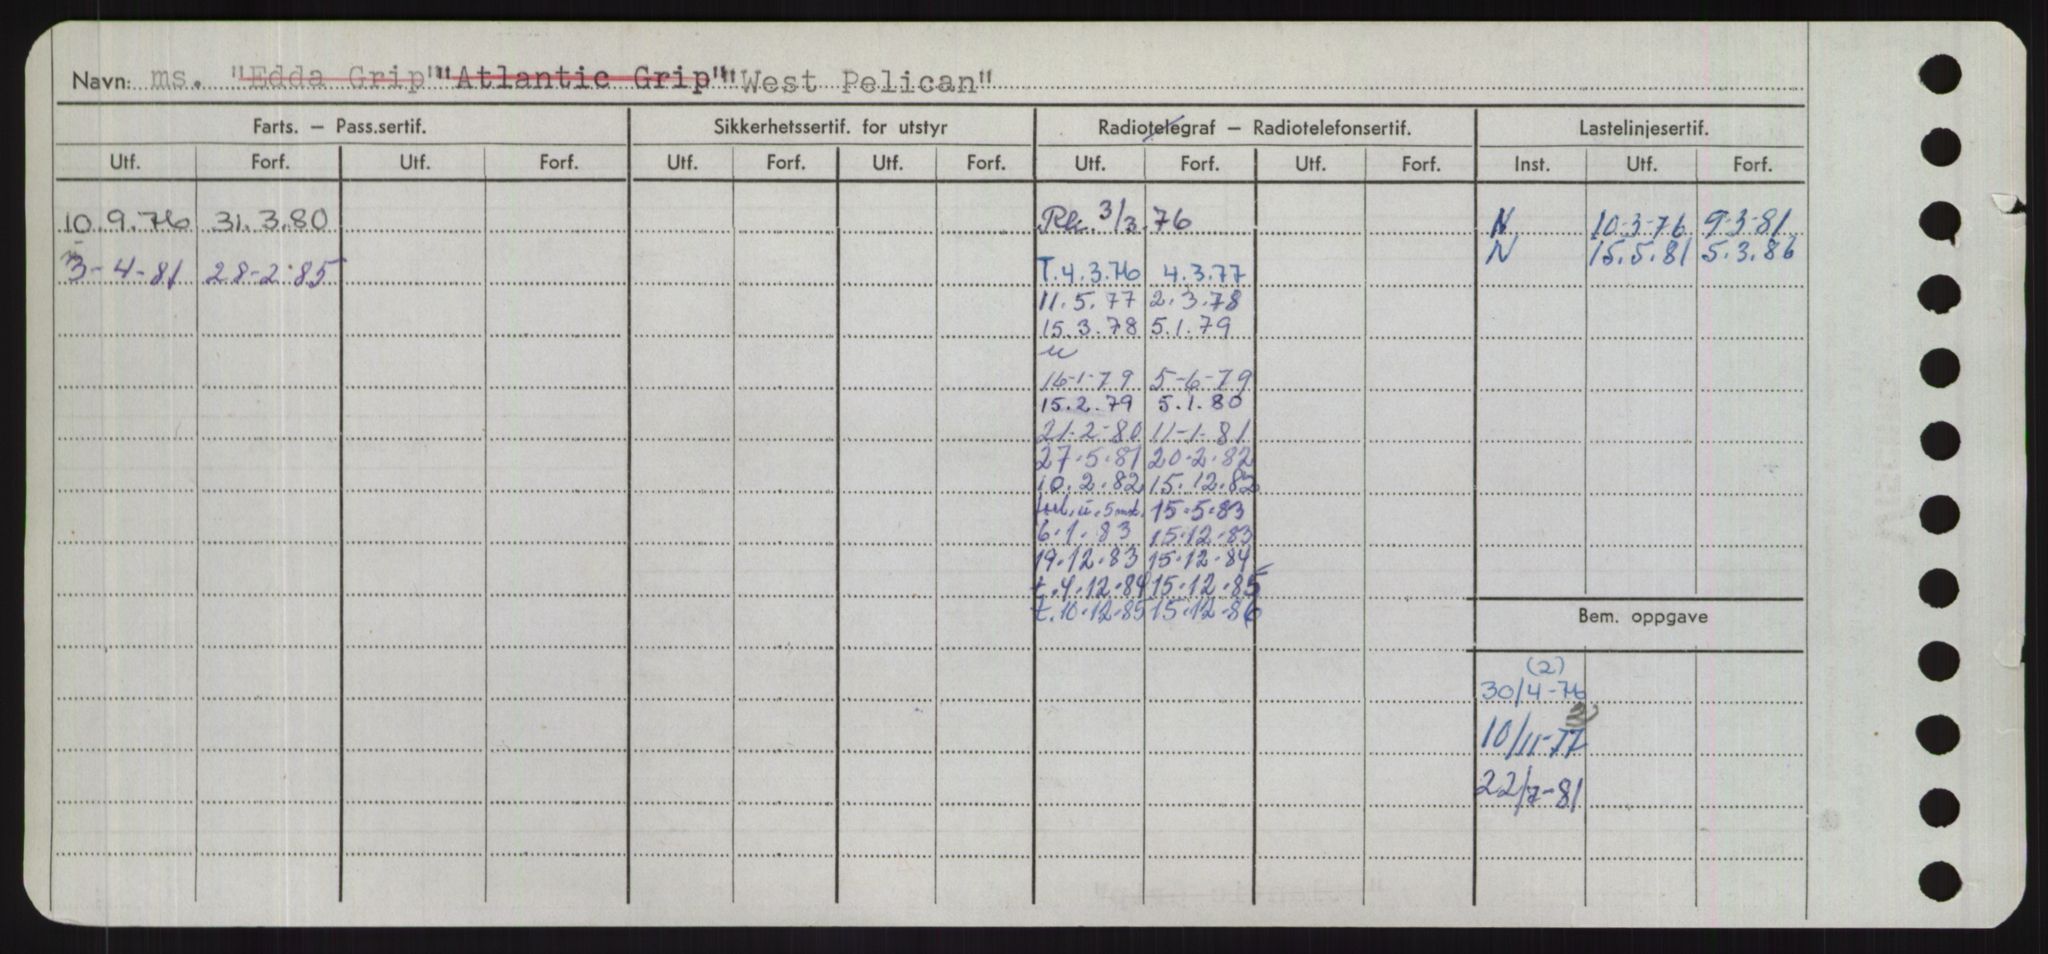 Navn: ms. "Edda Grip" "Atlantic Grip" "West Pelican"
Farts. – Pass.sertif. Sikkerhetssertif. for utstyr Radiotelegraf – Radiotelefonsertif. Lastelinjesertif.
Utf. Forf. Utf. Forf. Utf. Forf. Utf. Forf. Utf. Forf. Utf. Forf. Inst. Utf. Forf.
10.9.76 31.3.80 3/3.76 N 10-3-76 9-3-81
N 15.5.81 5.3.86
3-4-81 28-2-85 T.4.3.76 4.3.77
11.5.77 2.3.78
15.3.78 5.1.79
16-1-79 5-6-79
15.2.79 5.1.80
21-2-80 11-1-81
27.5.81 20.2.82
10.2.82 15.12.82
15.5.83
6.1.83 15.12.83
19.12.83 15.12.84
t.4.12.84 15.12.85
t.10.12.85 15.12.86
Bem. oppgave
(2)
30/4-76
10/11-77
22/7-81